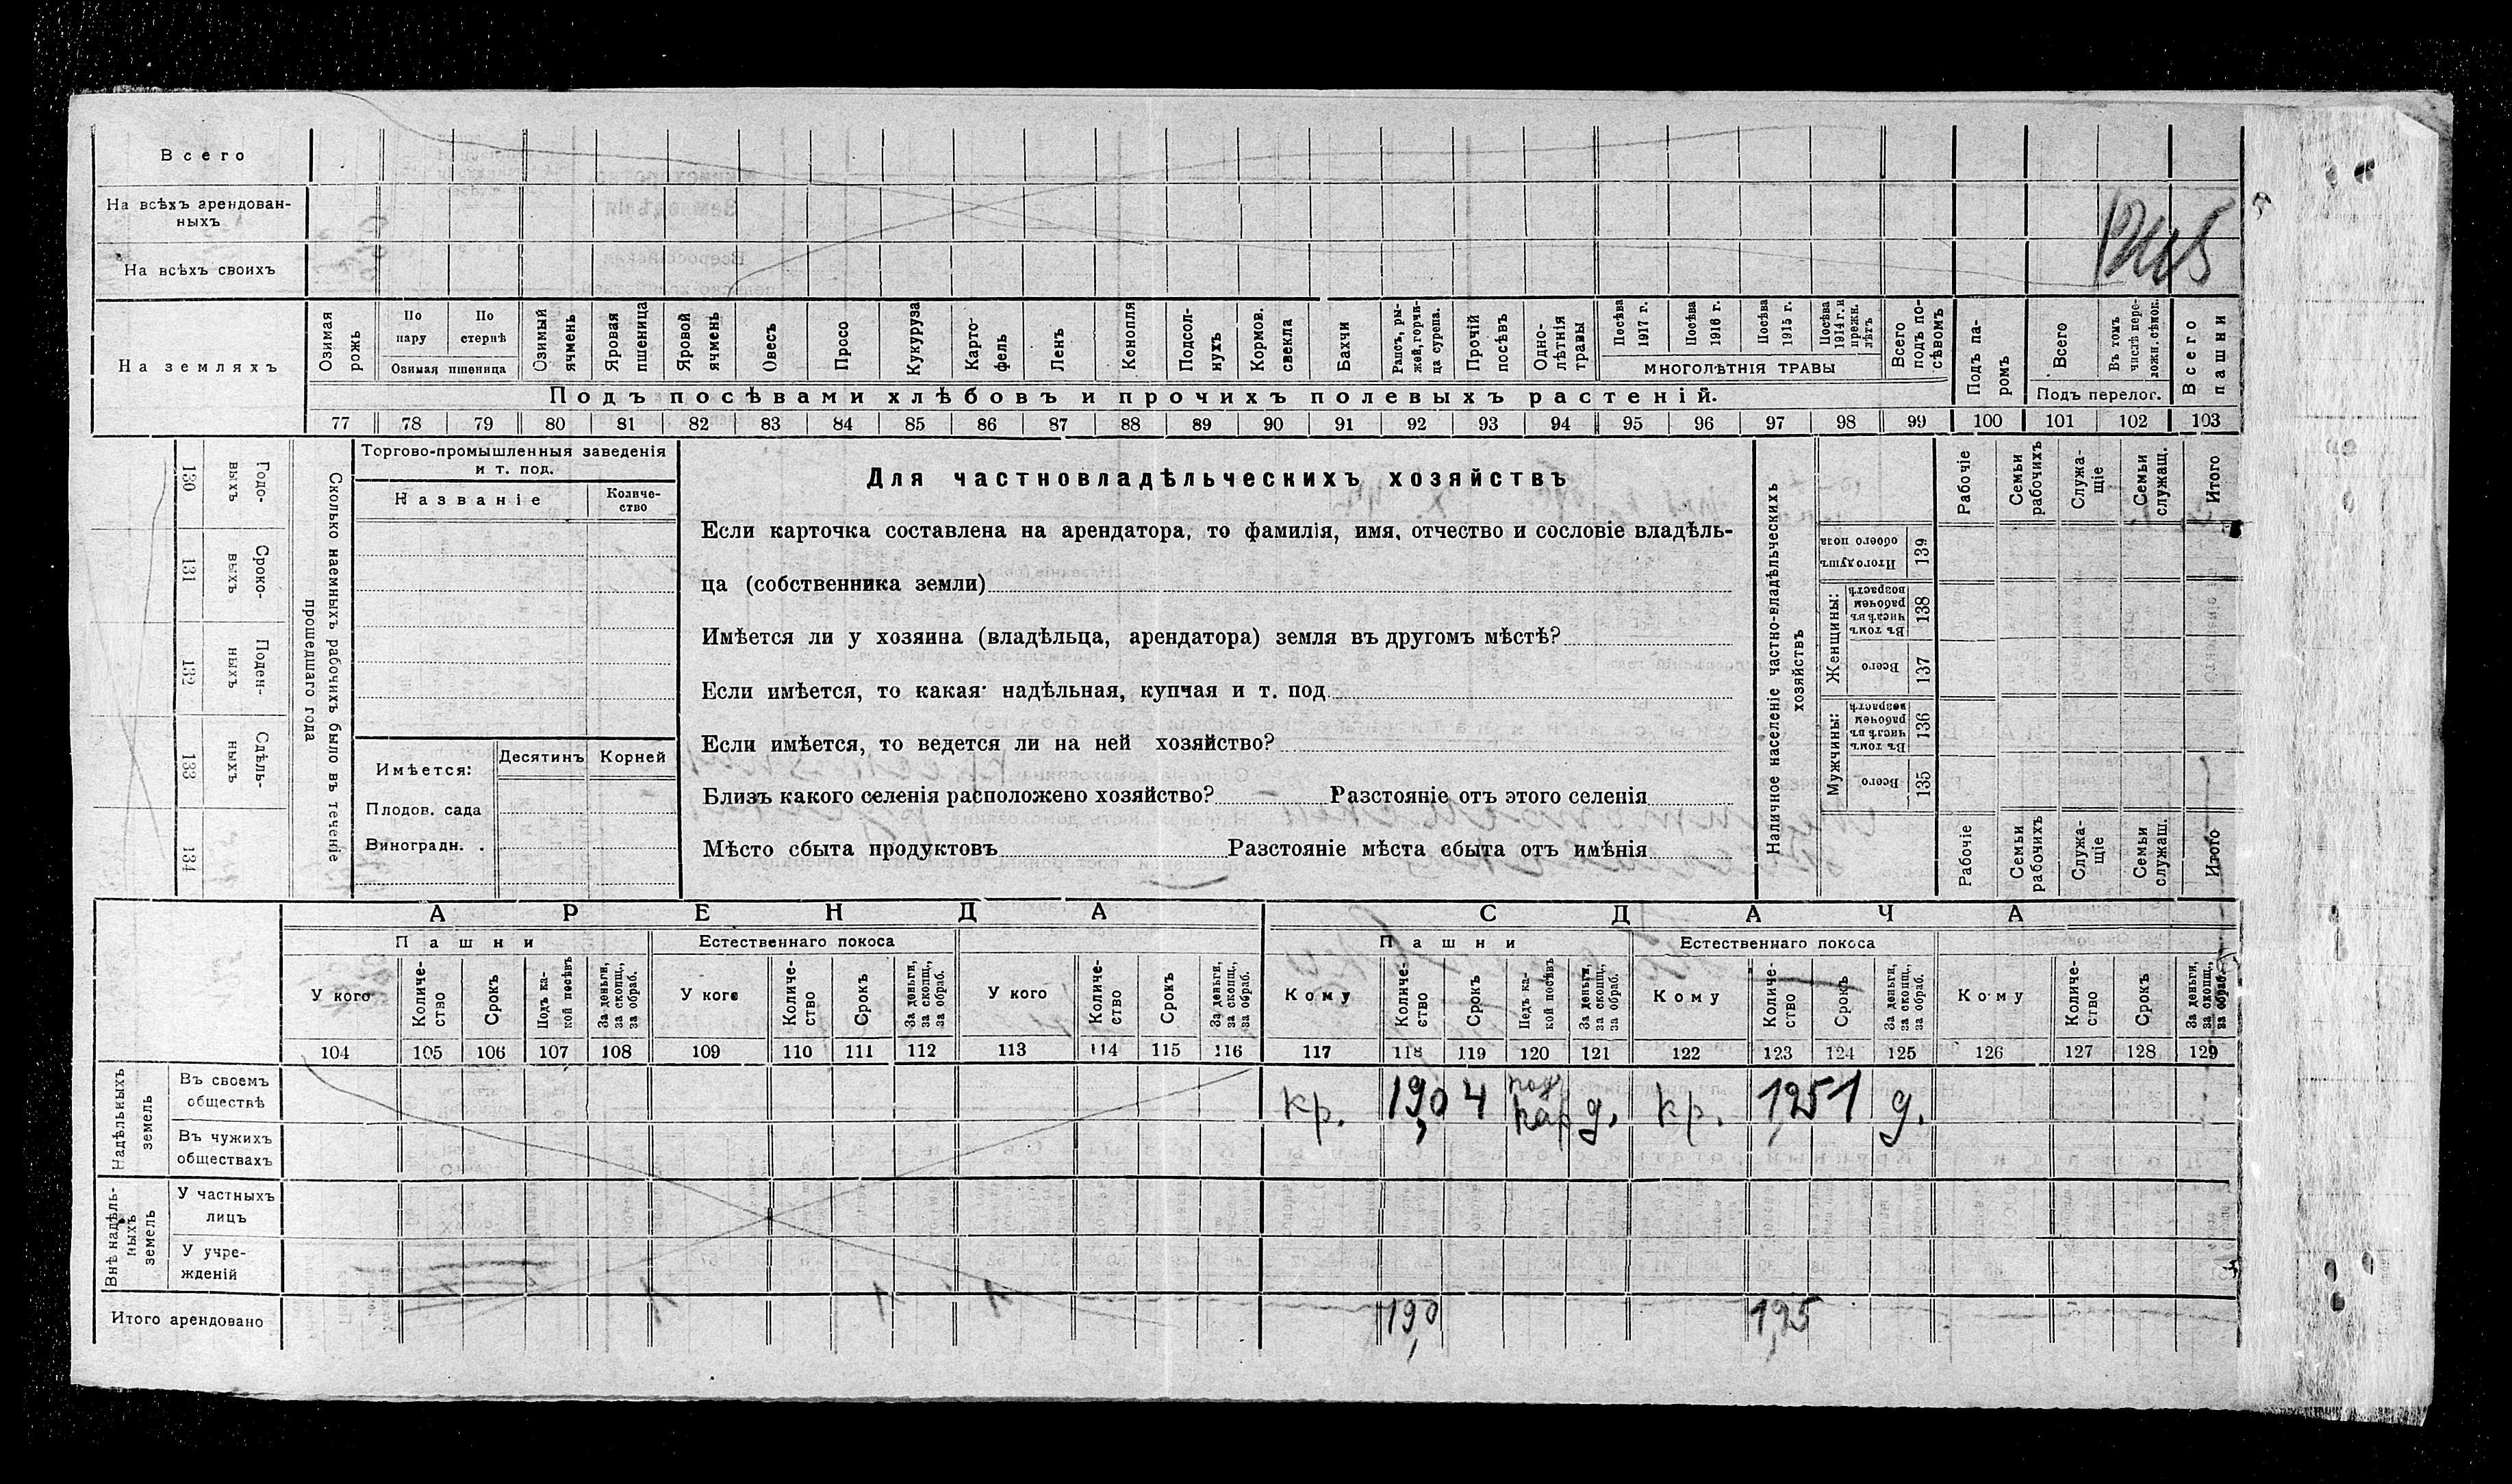 Всего
На всѣхъ арендован-
ныхъ
На всѣхъ своихъ
На земляхъ
Озимая рожь
По пару
По стернѣ
Озимая пшеница
Озимый ячмень
Яровая пшеница
Яровой ячмень
Овесъ
Просо
Кукуруза
Карто-
фель
Ленъ
Конопля
Подсол-
нухъ
Кормов. свекла
Бахчи
Рапсъ, ры-
жей, горчи-
ца сурепа.
Прочій посѣвъ
Одно-
лѣтнія травы
Посѣва 1917 г.
Посѣва 1916 г.
Посѣва 1915 г.
Посѣва 1914 г. и прежн. лѣтъ
МНОГОЛѢТНІЯ ТРАВЫ
Всего подъ по-
сѣвомъ
Подъ па-
ромъ
Всего
Въ томъ числѣ пере-
ложн. сѣнок.
Подъ перелог.
Всего пашни
Подъ посѣвами хлѣбовъ и прочихъ полевыхъ растеній.
77 78 79 80 81 82 83 84 85 86 87 88 89 90 91 92 93 94 95 96 97 98 99 100 101 102 103
130 Годо-
выхъ
131 Сроко-
выхъ
132 Поден-
ныхъ
133 Сдѣль-
ныхъ
134
Сколько наемныхъ рабочихъ было въ теченіе
прошедшаго года
Торгово-промышленныя заведенія
и т. под.
Названіе
Количе-
ство
Имѣется:
Десятинъ
Корней
Плодов. сада
Виноградн. .
Для частновладѣльческихъ хозяйствъ
Если карточка составлена на арендатора, то фамилія, имя, отчество и сословіе владѣль-
ца (собственника земли)
Имѣется ли у хозяина (владѣльца, арендатора) земля въ другомъ мѣстѣ?
Если имѣется, то какая надѣльная, купчая и т. под
Если имѣется, то ведется ли на ней хозяйство?
Близъ какого селенія расположено хозяйство? Разстояніе отъ этого селенія
Мѣсто сбыта продуктовъ Разстояніе мѣста сбыта отъ имѣнія
Наличное населеніе частно-владѣльческихъ
хозяйствъ
Рабочіе
Семьи рабочихъ
Служа-
щіе
Семьи служащ.
Итого
Итого душъ обоего пола 139
Женщины:
Въ томъ числѣ въ рабочем возрастѣ 138
Всего 137
Мужчины:
Въ томъ числѣ въ рабочем возрастѣ 136
Всего 135
Рабочіе
Семьи рабочихъ
Служа-
щіе
Семьи служащ.
Итого
АРЕНДА
СДАЧА
Пашни
Естественнаго покоса
Пашни
Естественнаго покоса
У кого
Количе-
ство
Срокъ
Подъ ка-
кой посѣвъ
За деньги, за скопщ., за обраб.
У кого
Количе-
ство
Срокъ
За деньги, за скопщ., за обраб.
У кого
Количе-
ство
Срокъ
За деньги, за скопщ., за обраб.
Кому
Количе-
ство
Срокъ
Подъ ка-
кой посѣвъ
За деньги, за скопщ., за обраб.
Кому
Количе-
ство
Срокъ
За деньги, за скопщ., за обраб.
Кому
Количе-
ство
Срокъ
За деньги, за скопщ., за обраб.
104 105 106 107 108 109 110 111 112 113 114 115 116 117 118 119 120 121 122 123 124 125 126 127 128 129
Надѣльныхъ земель
Въ своемъ
обществѣ
кр. 1,90 4 д. кр. 1,25 1 д.
Въ чужихъ
обществахъ
Внѣ надѣль-
ныхъ земель
У частныхъ
лицъ
У учре-
жденій
Итого арендовано
1,90 1,25